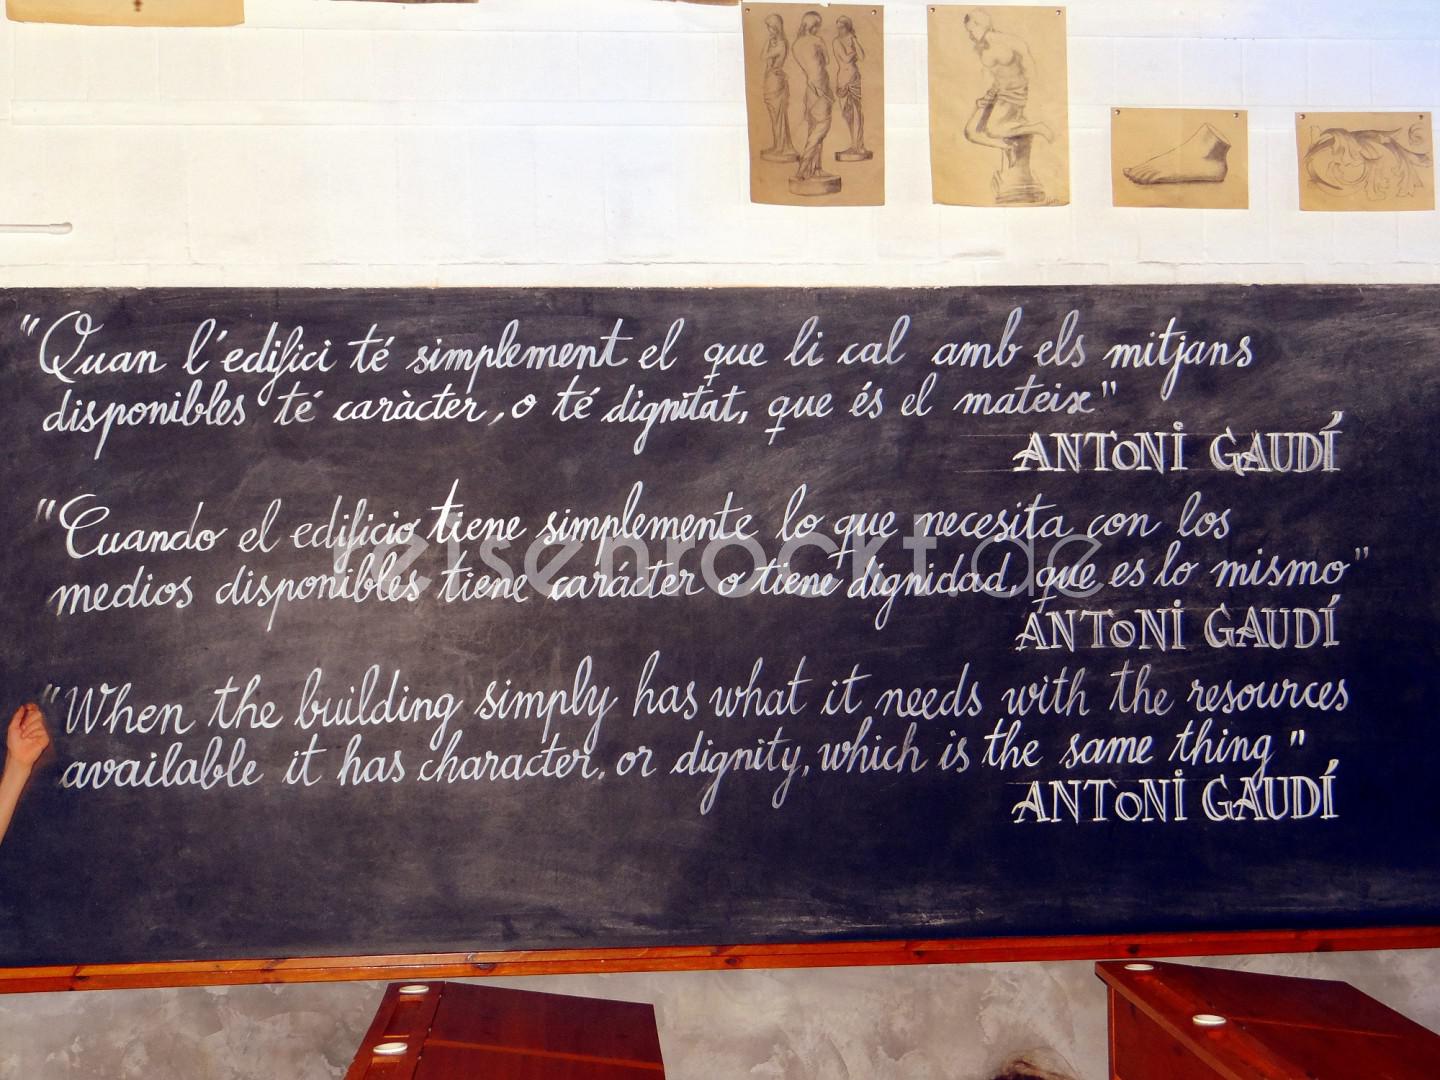 "Quan l'edifici té simplement el que li cal amb els mitjans
disponibles té caràcter, o té dignitat, que és el mateix"
ANTONI GAUDÍ
"Cuando el edificio tiene simplemente lo que necesita con los
medios disponibles tiene carácter o tiene dignidad, que es lo mismo"
ANTONI GAUDÍ
reisenrockt.de
"When the building simply has what it needs with the resources
available it has character, or dignity, which is the same thing"
ANTONI GAUDÍ